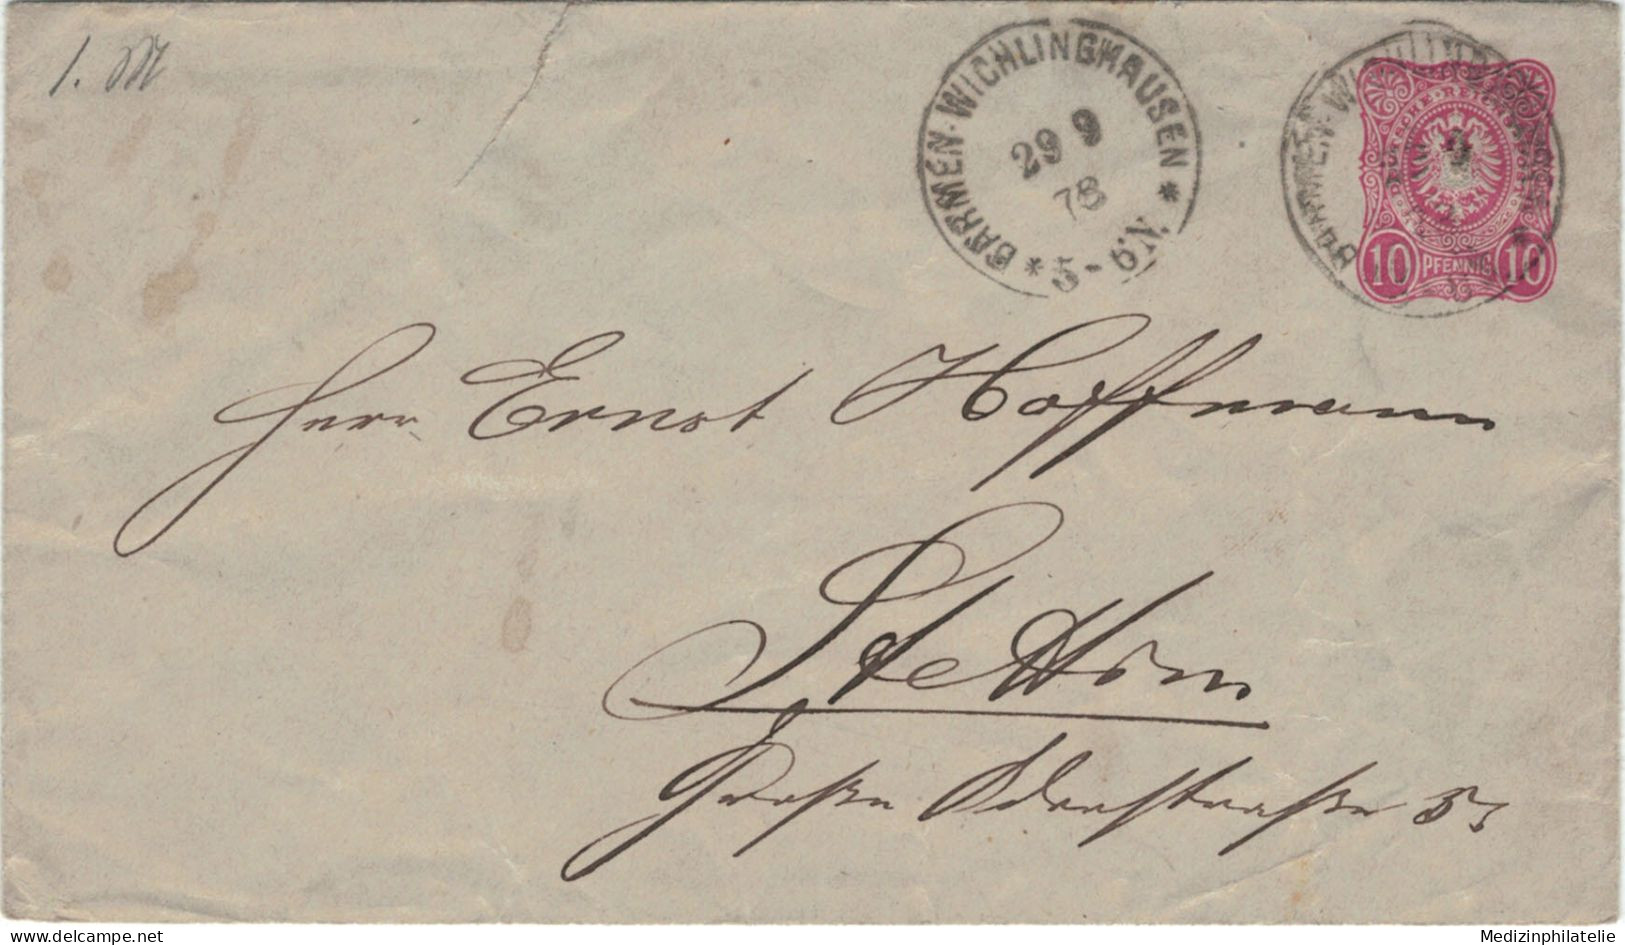 1. M
BARMEN-WICHLINGHAUSEN
29 9
78
* 5-6.N. *
DEUTSCHE REICHSPOST
10 PFENNIG 10
Herr Ernst Hoffmann
Stettin
Große Oderstraße
delcampe.net
Medizinphilatelie